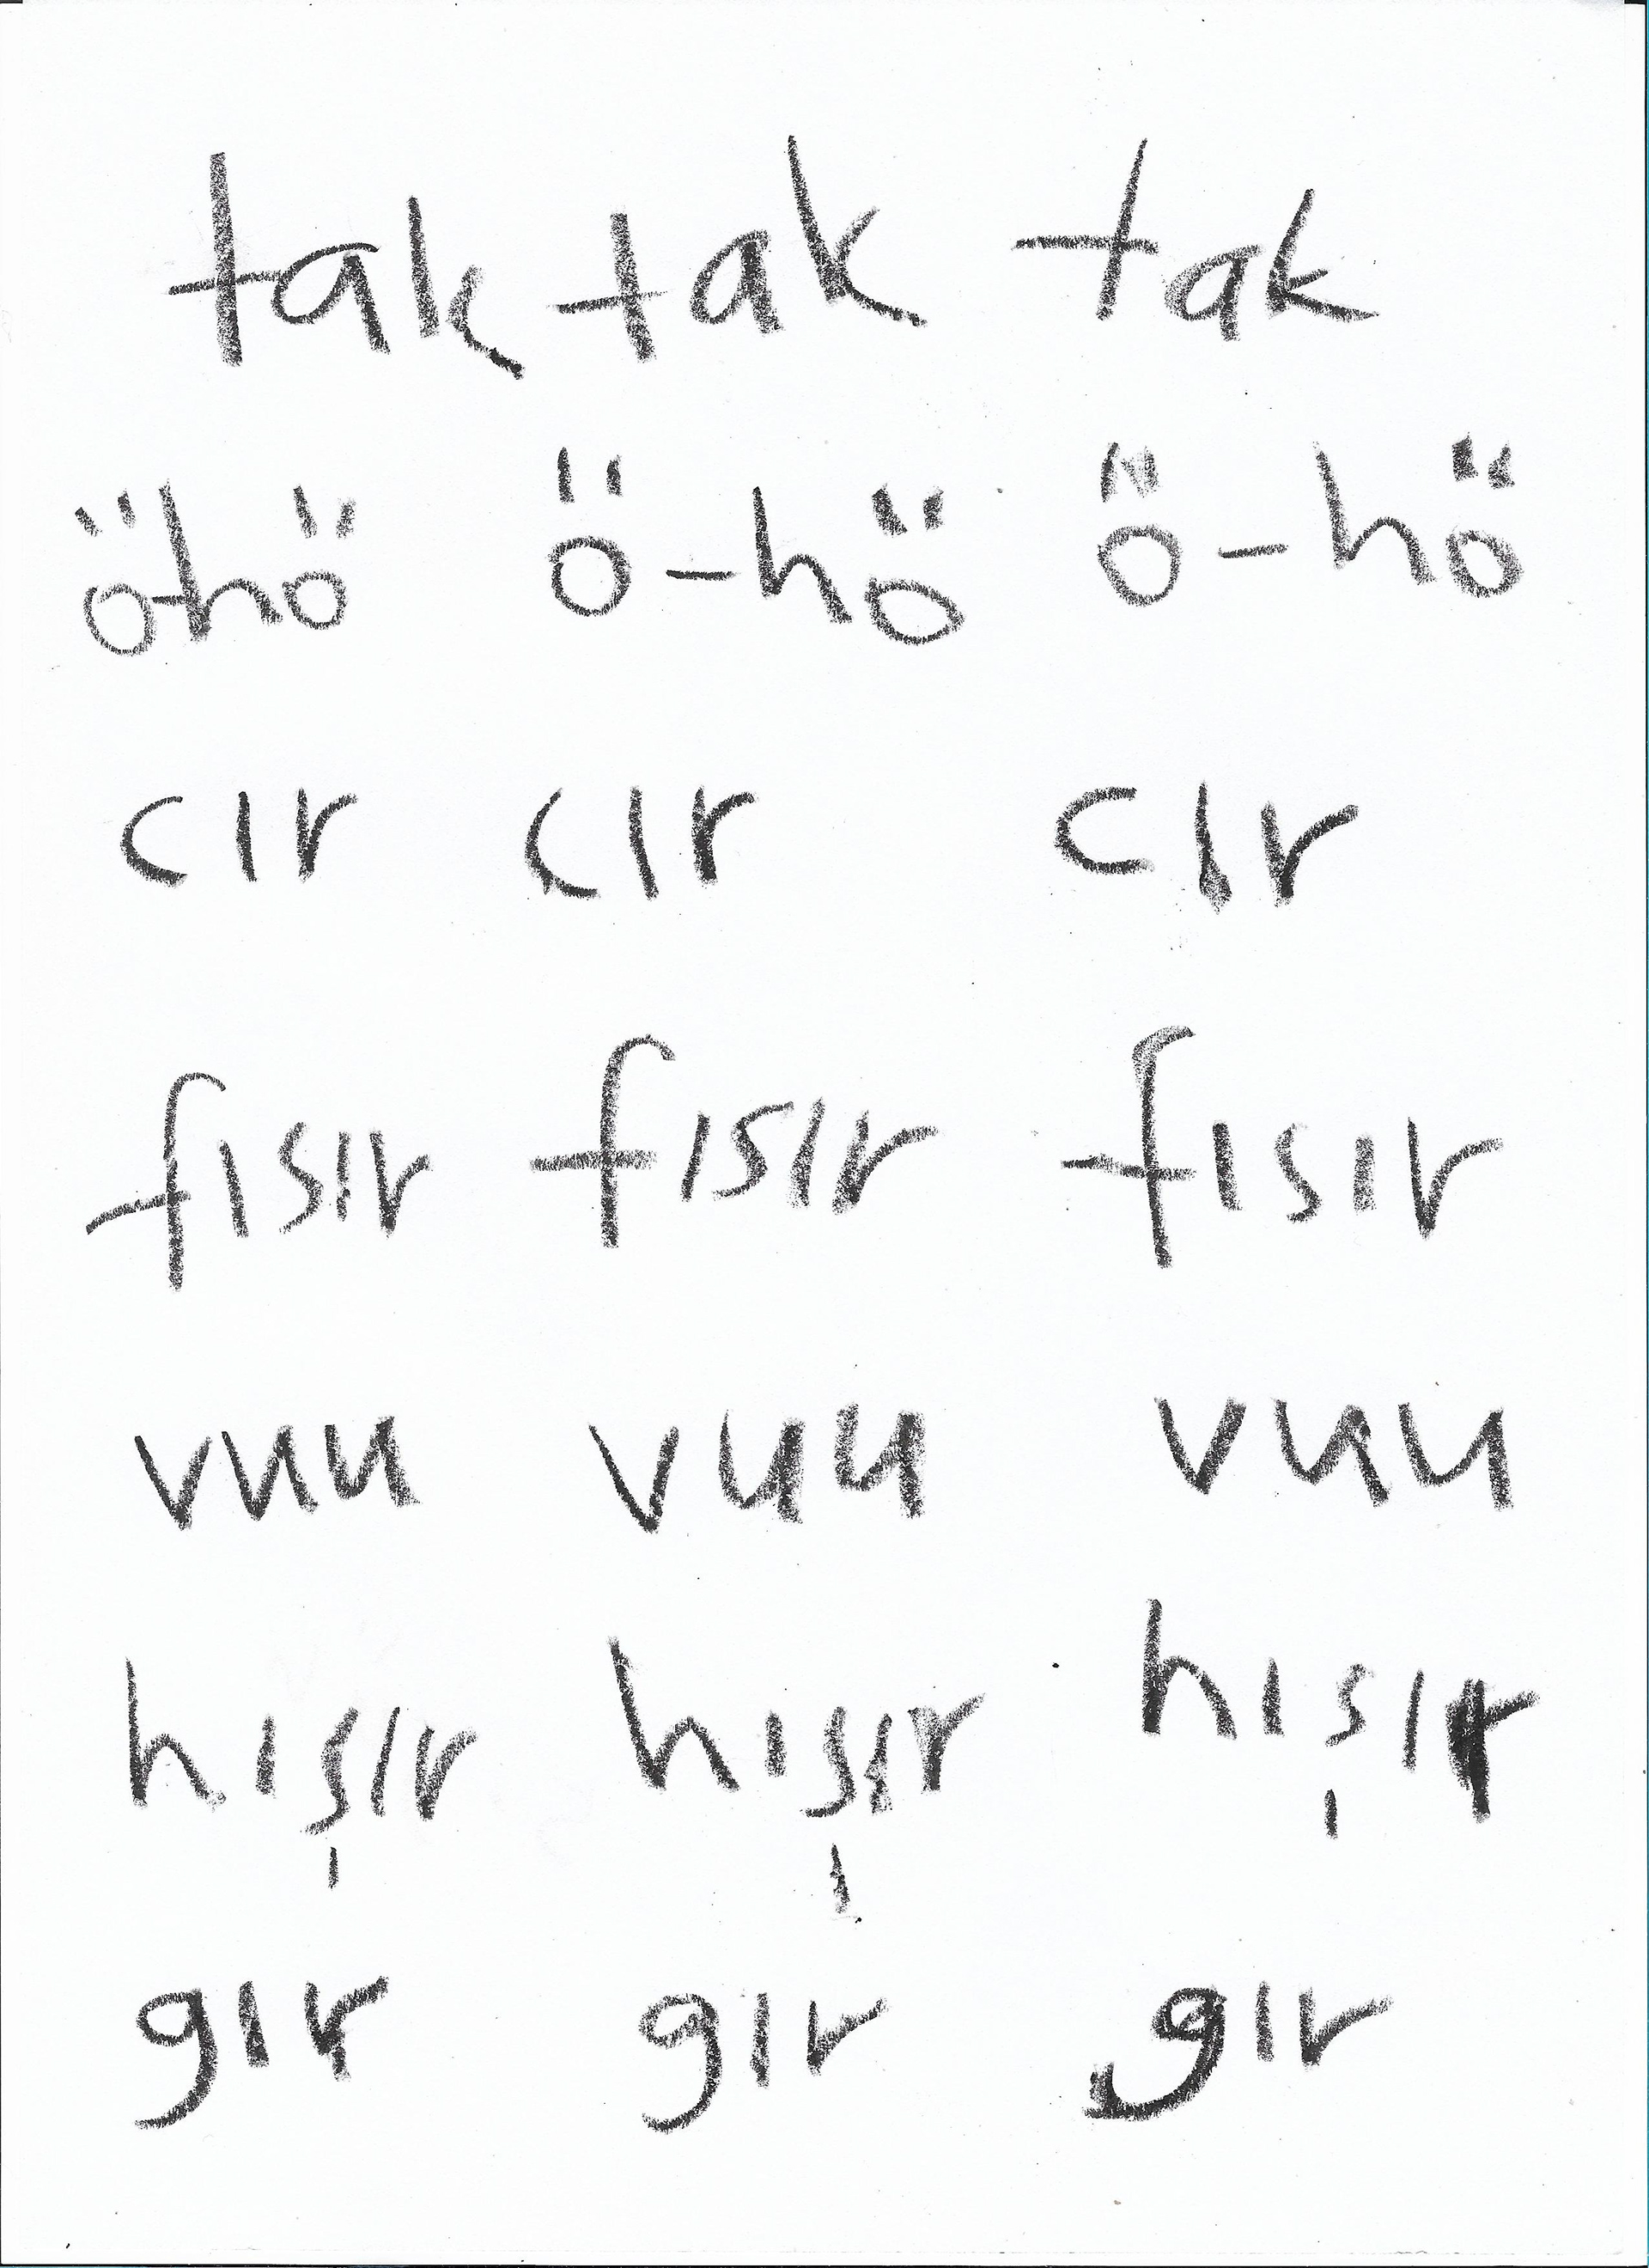 tak tak tak
ö-hö ö-hö ö-hö
cır cır cır
fısır fısır fısır
vuu vuu vuu
hışır hışır hışır
gır gır gır